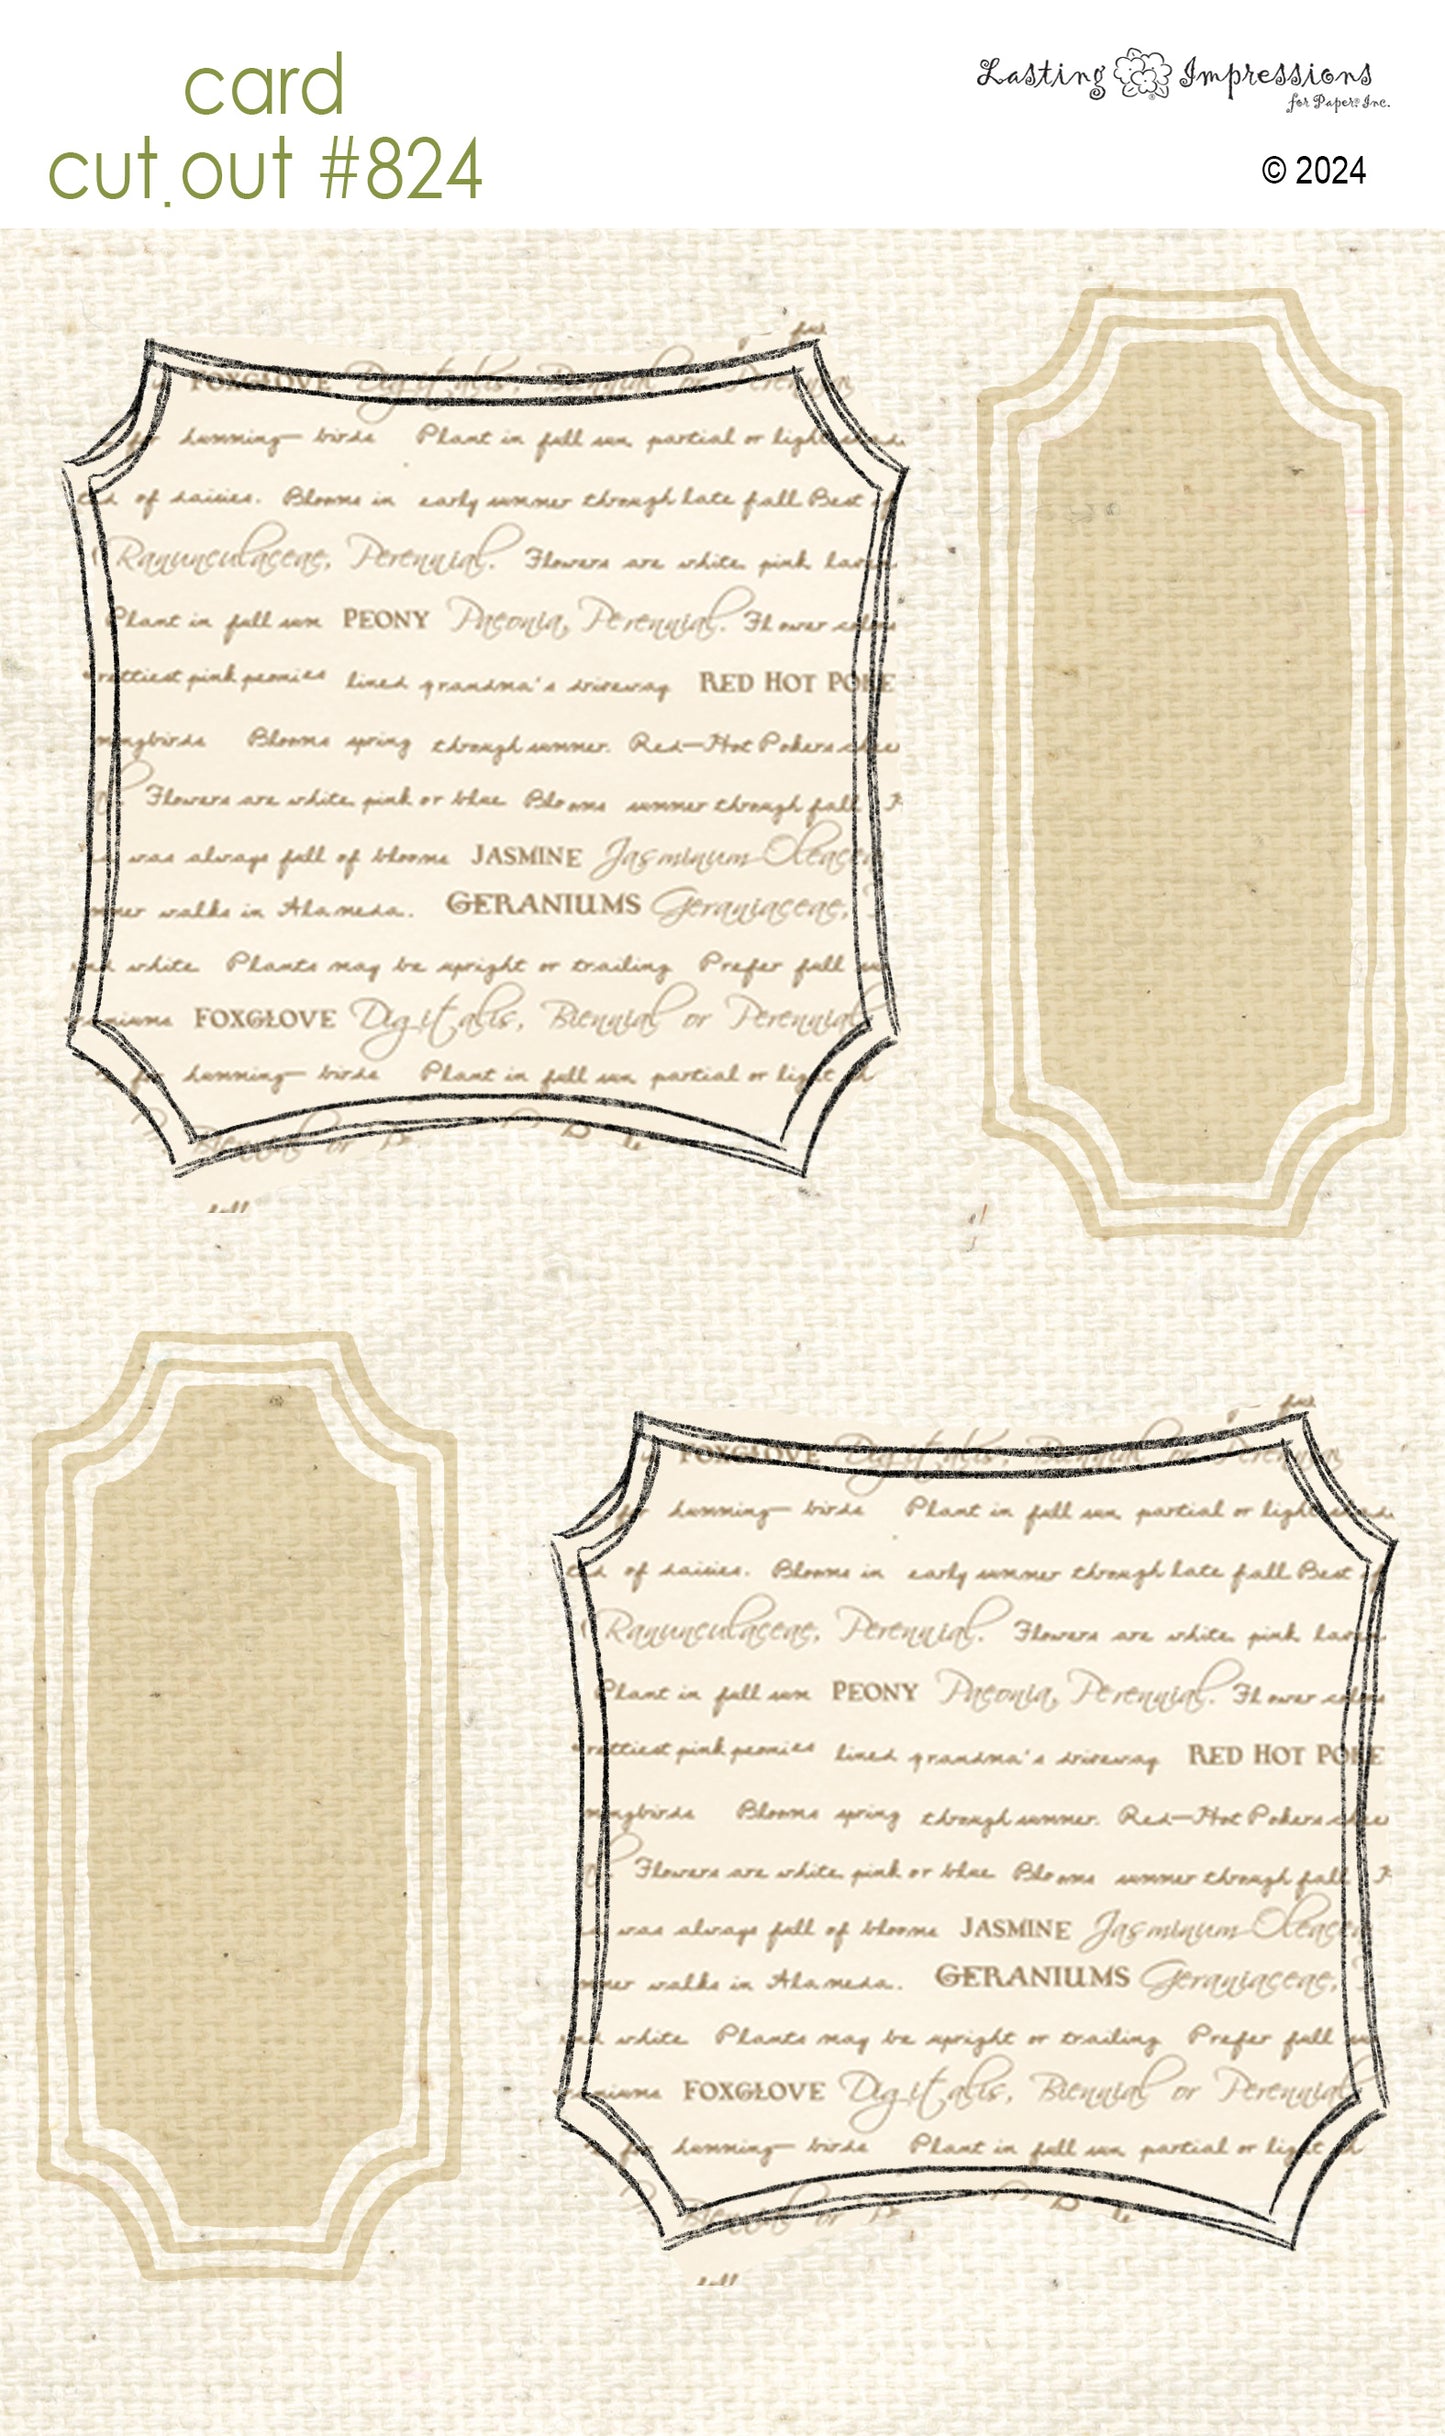 card
cut out #824
Lasting Impressions
for Paper Inc.
© 2024
FOXGLOVE Digitalis, Biennial or Perennial
for humming- birds Plant in full sun partial or light
of daisies. Blooms in early summer through late fall Best
Ranunculaceae, Perennial. Flowers are white pink
Plant in full sun PEONY Paeonia, Perennial. Flower colors
prettiest pink peonies lined grandma's driveway RED HOT POKE
mingbirds Blooms spring through summer. Red-Hot Pokers
Flowers are white pink or blue Blooms summer through fall
was always full of blooms JASMINE Jasminum Oleacea
mer walks in Alameda. GERANIUMS Geraniaceae,
and white Plants may be upright or trailing Prefer full
raniums FOXGLOVE Digitalis, Biennial or Perennial
for humming- birds Plant in full sun partial or light
Biennial or
full
FOXGLOVE Digitalis, Biennial or Perennial
for humming- birds Plant in full sun partial or light
of daisies. Blooms in early summer through late fall Best
Ranunculaceae, Perennial. Flowers are white pink
Plant in full sun PEONY Paeonia, Perennial. Flower colors
prettiest pink peonies lined grandma's driveway RED HOT POKE
mingbirds Blooms spring through summer. Red-Hot Pokers
Flowers are white pink or blue Blooms summer through fall
was always full of blooms JASMINE Jasminum Oleacea
mer walks in Alameda. GERANIUMS Geraniaceae,
and white Plants may be upright or trailing Prefer full
raniums FOXGLOVE Digitalis, Biennial or Perennial
for humming- birds Plant in full sun partial or light
Biennial or
full